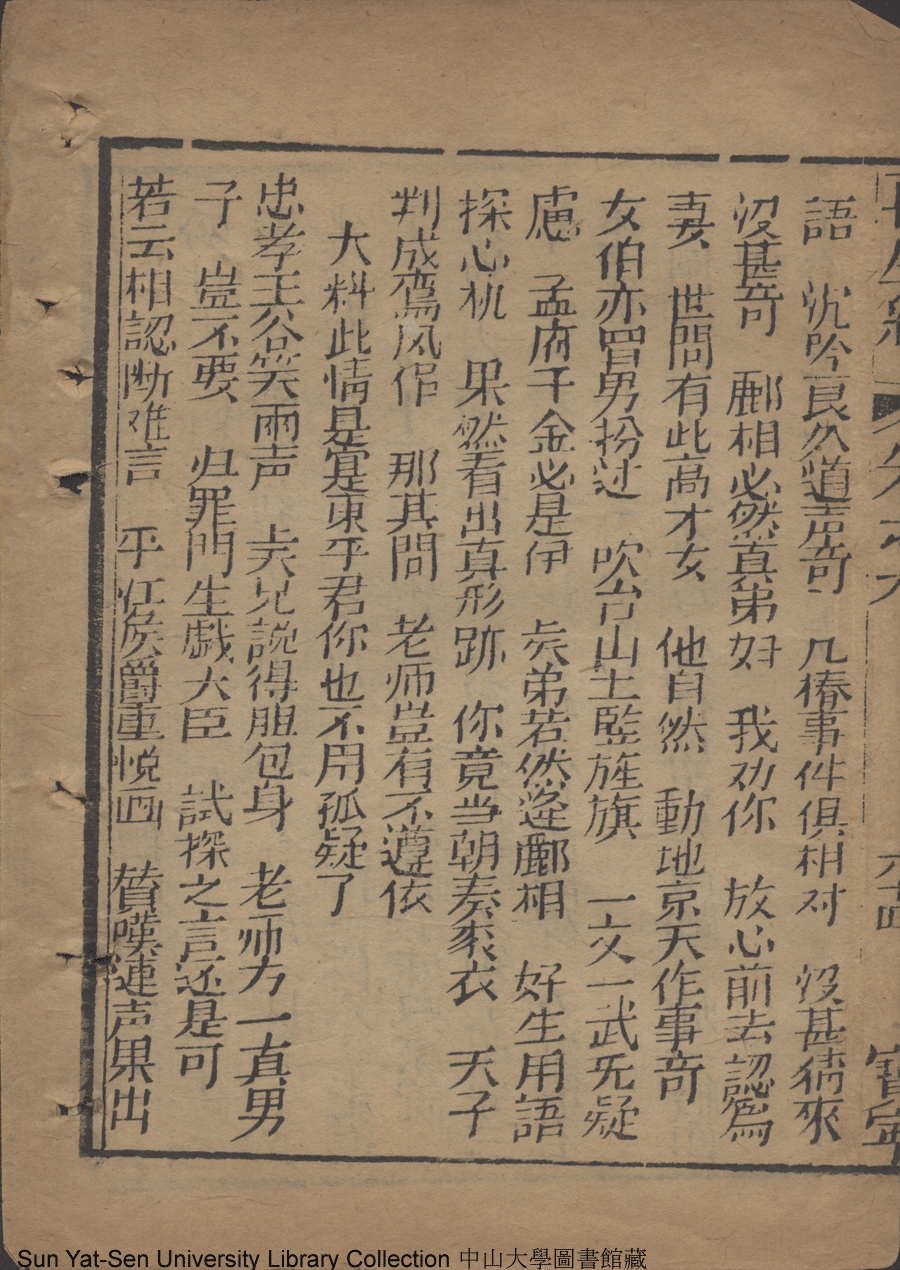 語 沉吟良久道声奇 几樁事件俱相对 沒甚猜來
沒甚奇 酈相必然真弟妇 我劝你 放心前去認為
妻 世間有此高才女 他自然 動地京天作事奇
女伯亦冒男扮过 吹台山上監旌旗 一文一武旡疑
慮 孟府千金必是伊 贤弟若然逢酈相 好生用語
探心机 果然看出真形跡 你竟当朝奏袞衣 天子
判成鸾凤侶 那其間 老师豈有不遵依
大料此情是寔 東平君你也不用孤疑了
忠孝王谷笑兩声 贤兄説得胆包身 老师乃一真男
子 豈不要 归罪門生戯大臣 試探之言还是可
若云相認断难言 平江侯爵重悦画 賛嘆連声果出
Sun Yat-Sen University Library Collection 中山大學圖書館藏